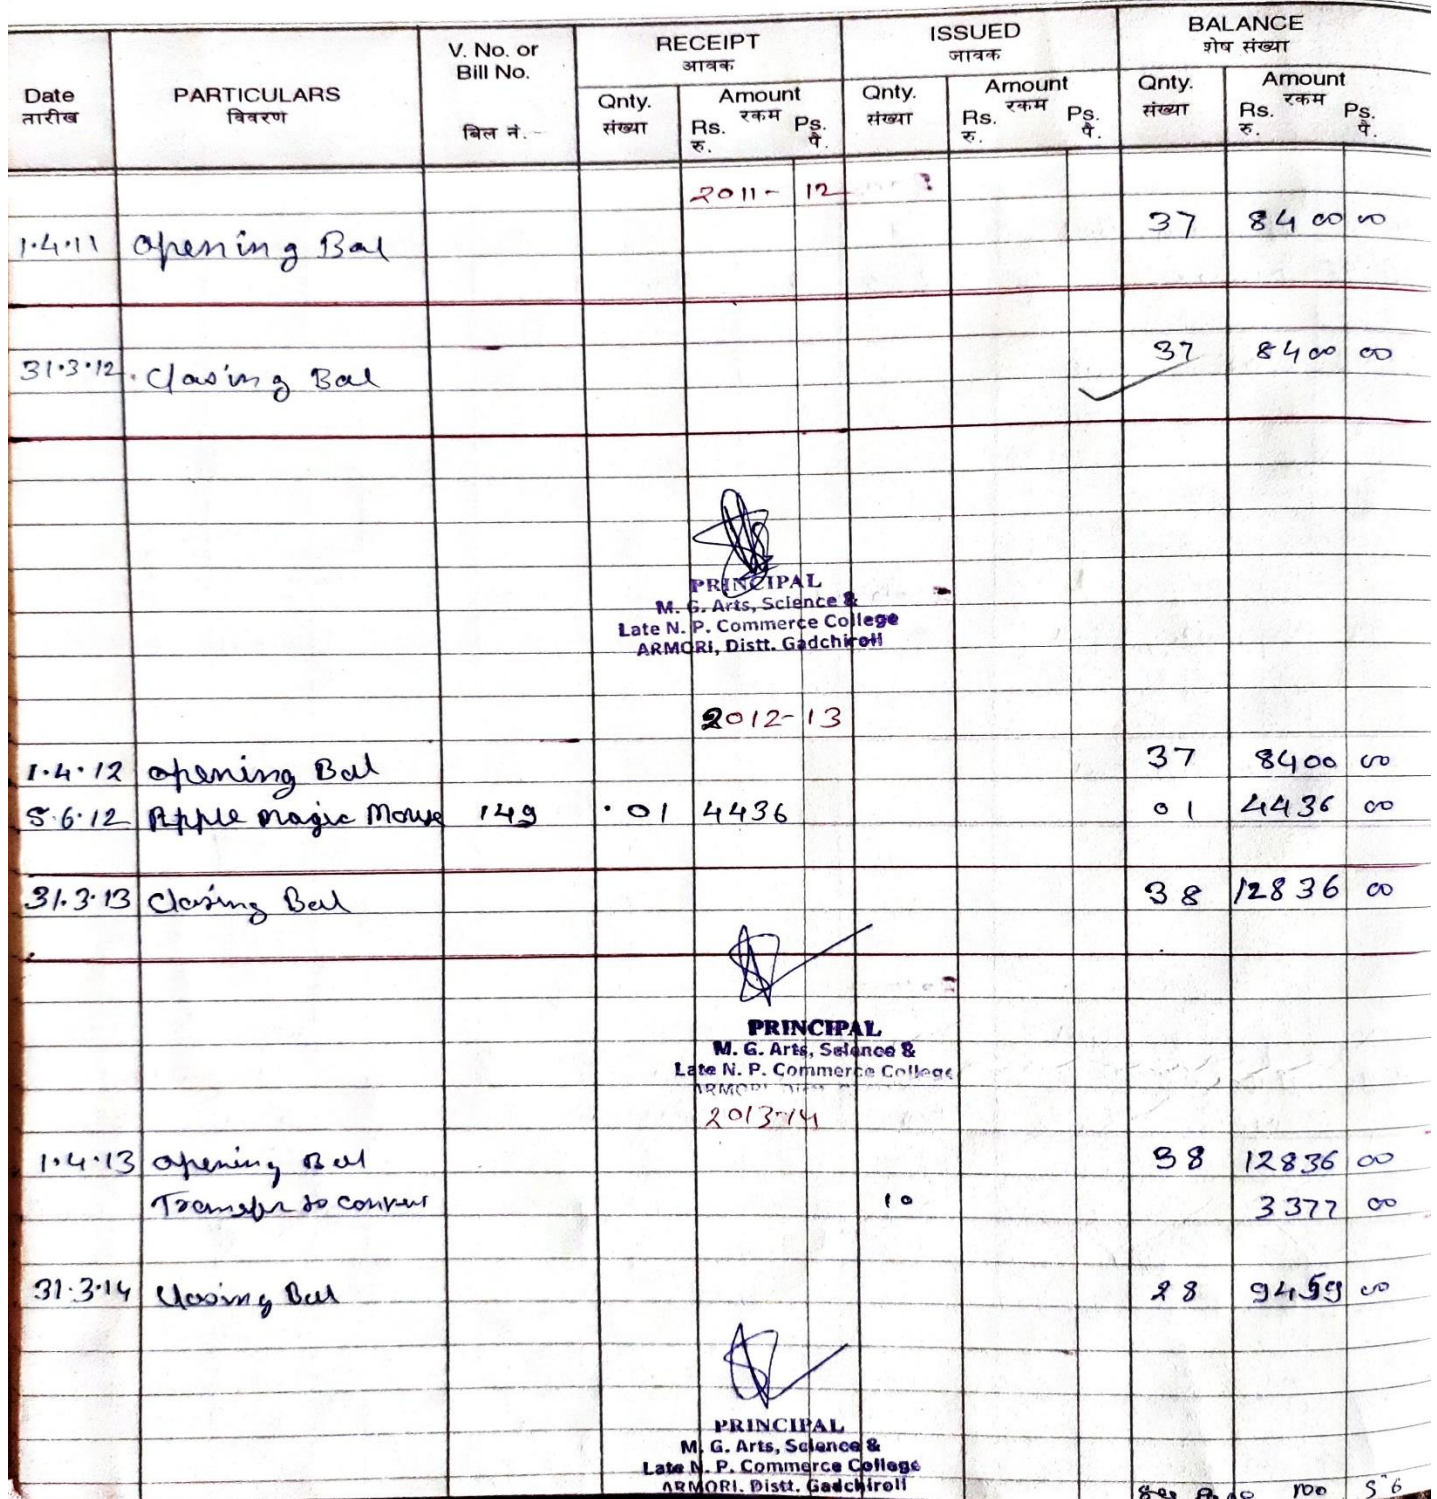 Date तारीख PARTICULARS विवरण V. No. or Bill No. बिल नं. RECEIPT आवक ISSUED जावक BALANCE शेष संख्या
Qnty. संख्या Amount रकम Rs. रु. Ps. पै. Qnty. संख्या Amount रकम Rs. रु. Ps. पै. Qnty. संख्या Amount रकम Rs. रु. Ps. पै.
2011-12
1.4.11 Opening Bal 37 8400 00
31.3.12 Closing Bal 37 8400 00
PRINCIPAL
M. G. Arts, Science &
Late N. P. Commerce College
ARMORI, Distt. Gadchiroli
2012-13
1.4.12 Opening Bal 37 8400 00
5.6.12 Apple Magic Mouse 149 01 4436 01 4436 00
31.3.13 Closing Bal 38 12836 00
PRINCIPAL
M. G. Arts, Science &
Late N. P. Commerce College
ARMORI
2013-14
1.4.13 Opening Bal 38 12836 00
Transfer to 10 3377 00
31.3.14 Closing Bal 28 9459 00
PRINCIPAL
M. G. Arts, Science &
Late N. P. Commerce College
ARMORI, Distt. Gadchiroli